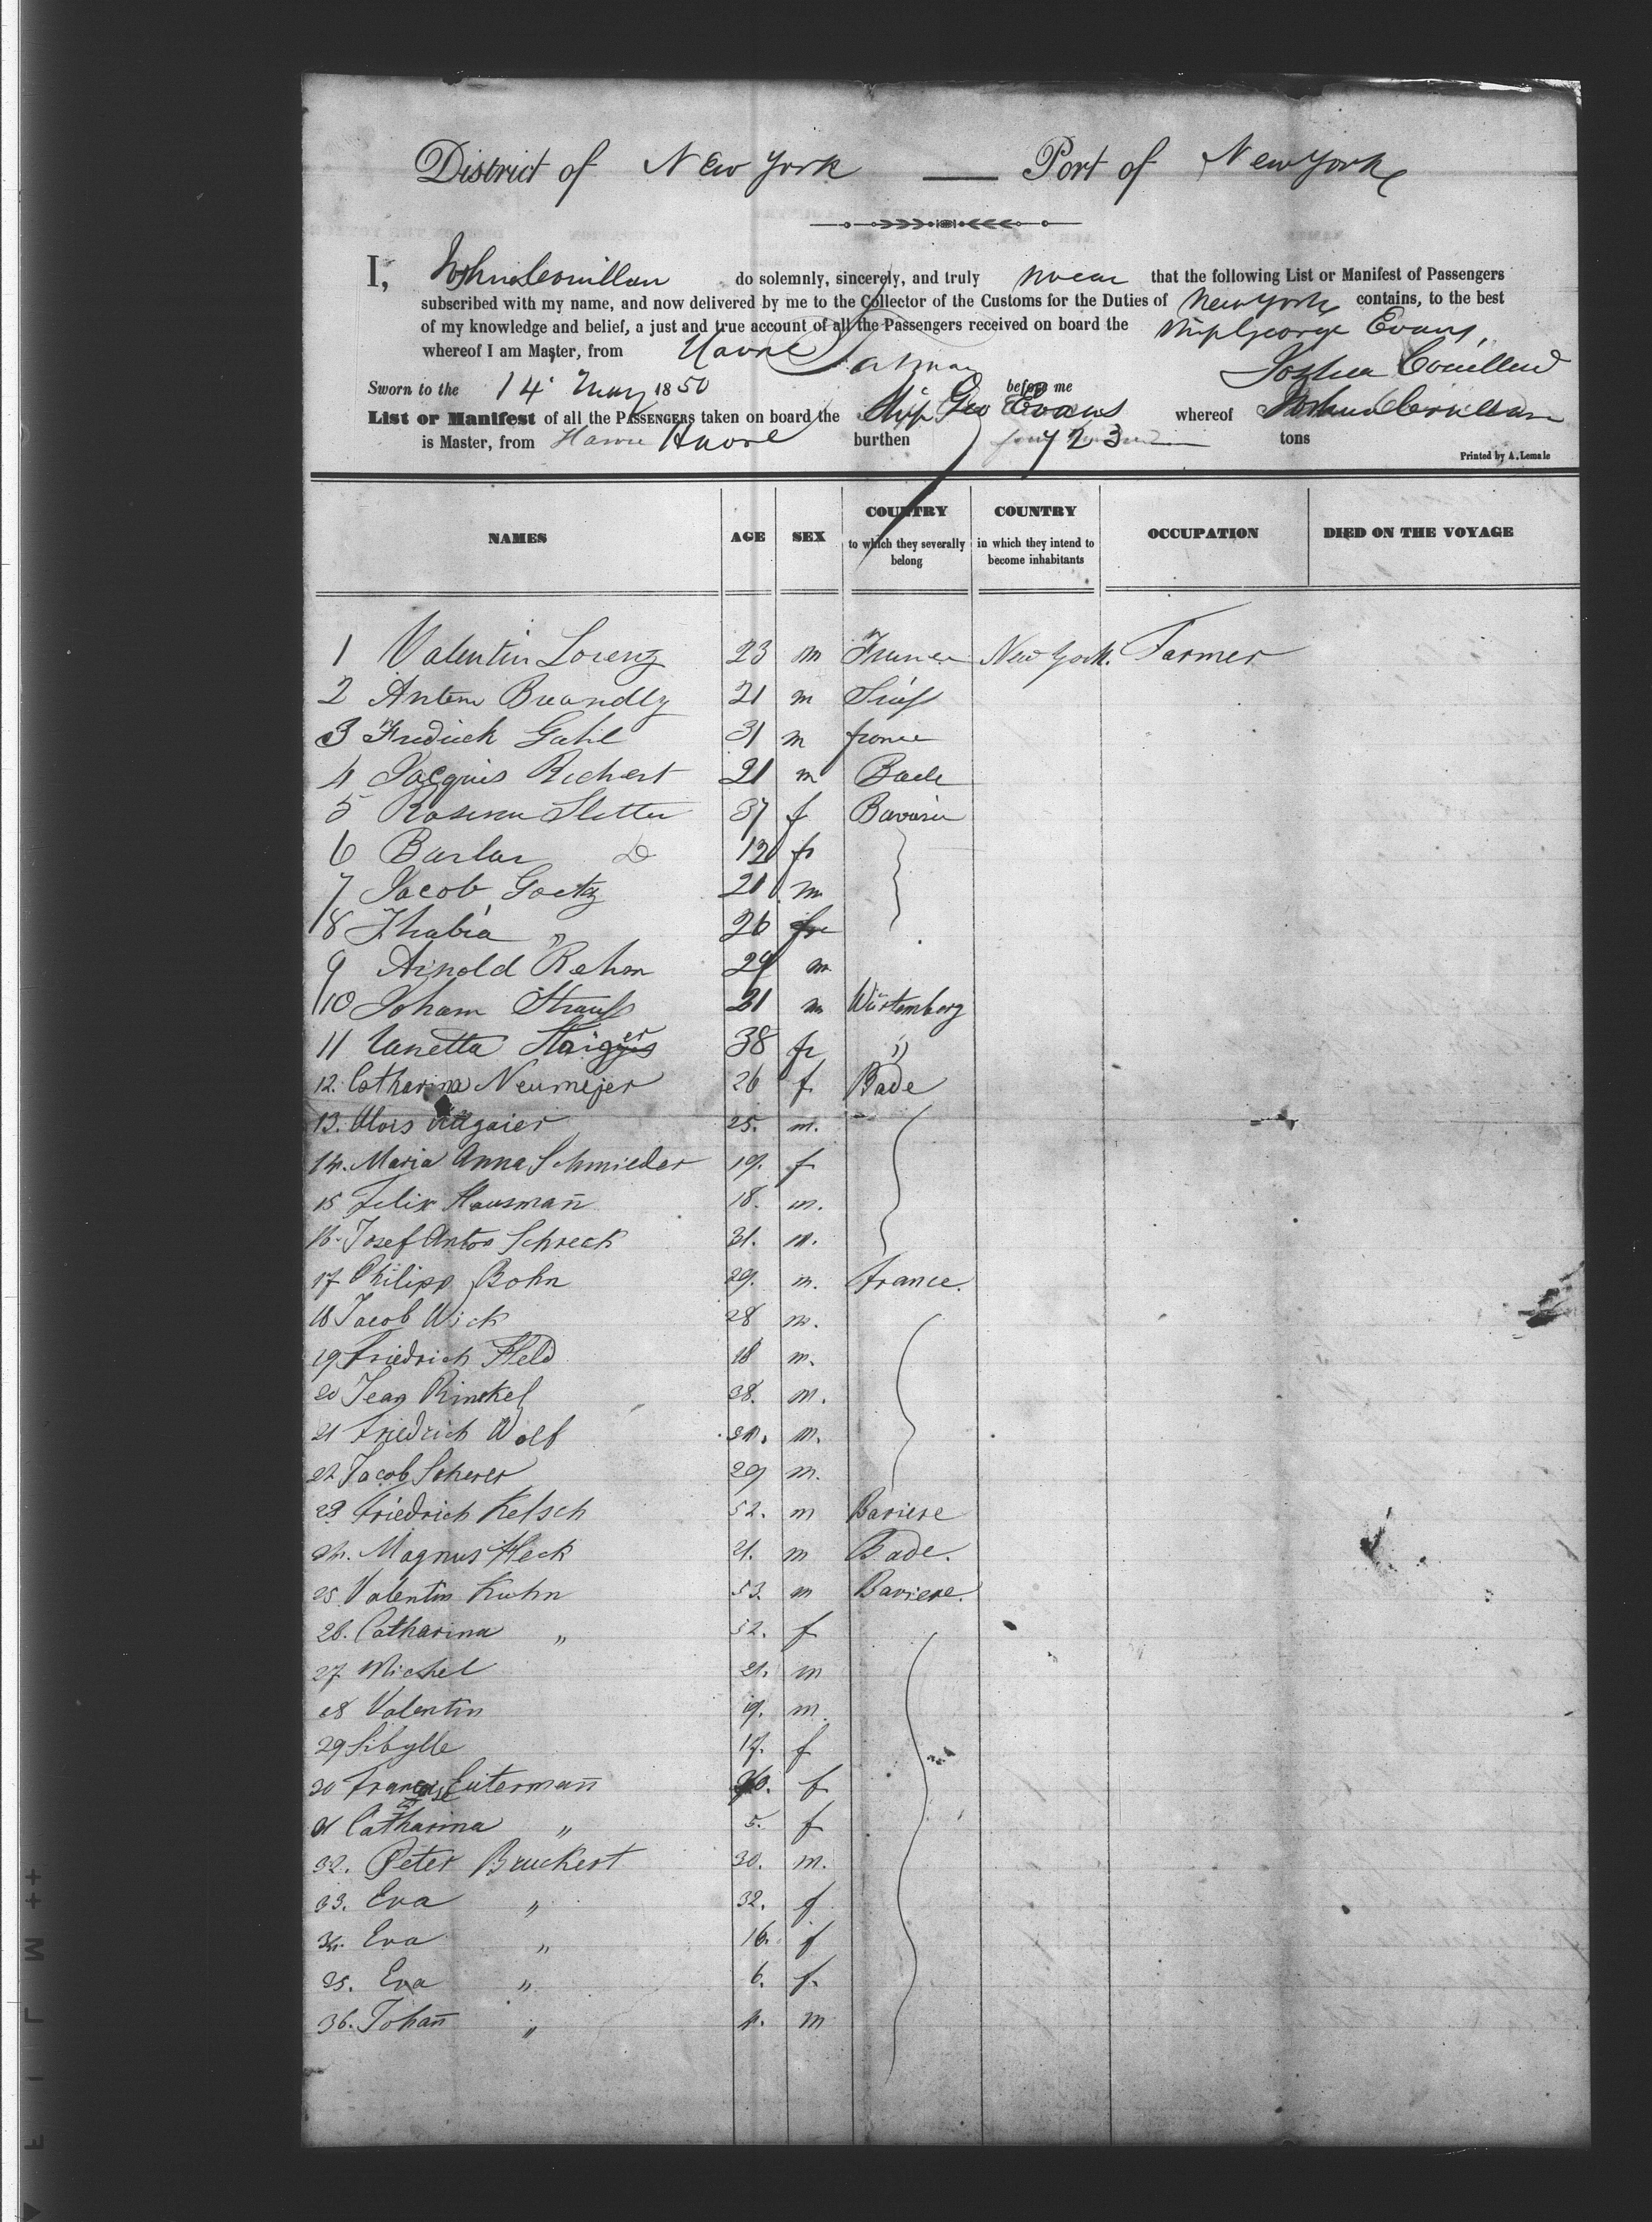 District of New York — Port of New York
I, Joshua Couillard do solemnly, sincerely, and truly swear that the following List or Manifest of Passengers
subscribed with my name, and now delivered by me to the Collector of the Customs for the Duties of New York contains, to the best
of my knowledge and belief, a just and true account of all the Passengers received on board the Ship George Evans,
whereof I am Master, from Havre
Joshua Couillard
Sworn to the 14 May 1850 before me
List or Manifest of all the PASSENGERS taken on board the Ship Geo Evans whereof
is Master, from Havre Havre burthen 723 tons
Printed by A. Lemale
NAMES AGE SEX COUNTRY to which they severally belong COUNTRY in which they intend to become inhabitants OCCUPATION DIED ON THE VOYAGE
1 Valentin Lorenz 23 m France New York. Farmer
2 Anton Brandly 21 m
3 Fredrick Gahl 31 m france
4 Jacques Richert 21 m Bade
5 Rosina 37 f Bavaria
6 D 12 f
7 Jacob Goetz 21 m
8 " 26
9 Arnold Rehm 29 m
10 Joham Strauß 21 m Würtemberg
11 38 "
12. Catharina Neumejer 26 f. Bade
13. Alois 25. m.
14. Maria Anna Schmieder 19. f
15 Felix Hausmañ 18. m.
16. Josef Anton Schreck 31. m.
17 Philipp Bohn 29. m. France.
18 Jacob Wick 28 m.
19 Friedrich Held 18 m.
20 Jean Rinckel 38. m.
21 Friedrich Wolf m.
22 Jacob Scherer 29 m.
23 Friedrich Ketsch 52. m Baviere
24. Magnus Heck 21. m Bade.
25. Valentin Kuhn 53. m Baviere.
26. Catharina " 52. f
27 Michel 21. m
28 Valentin 19. m.
29 Sibylle 17. f
30 f
31 Catharina " 5. f
32. Peter Bruckert 30. m.
33. Eva " 32. f
34. Eva " 16. f
35. Eva " 6. f.
36. Johañ " m